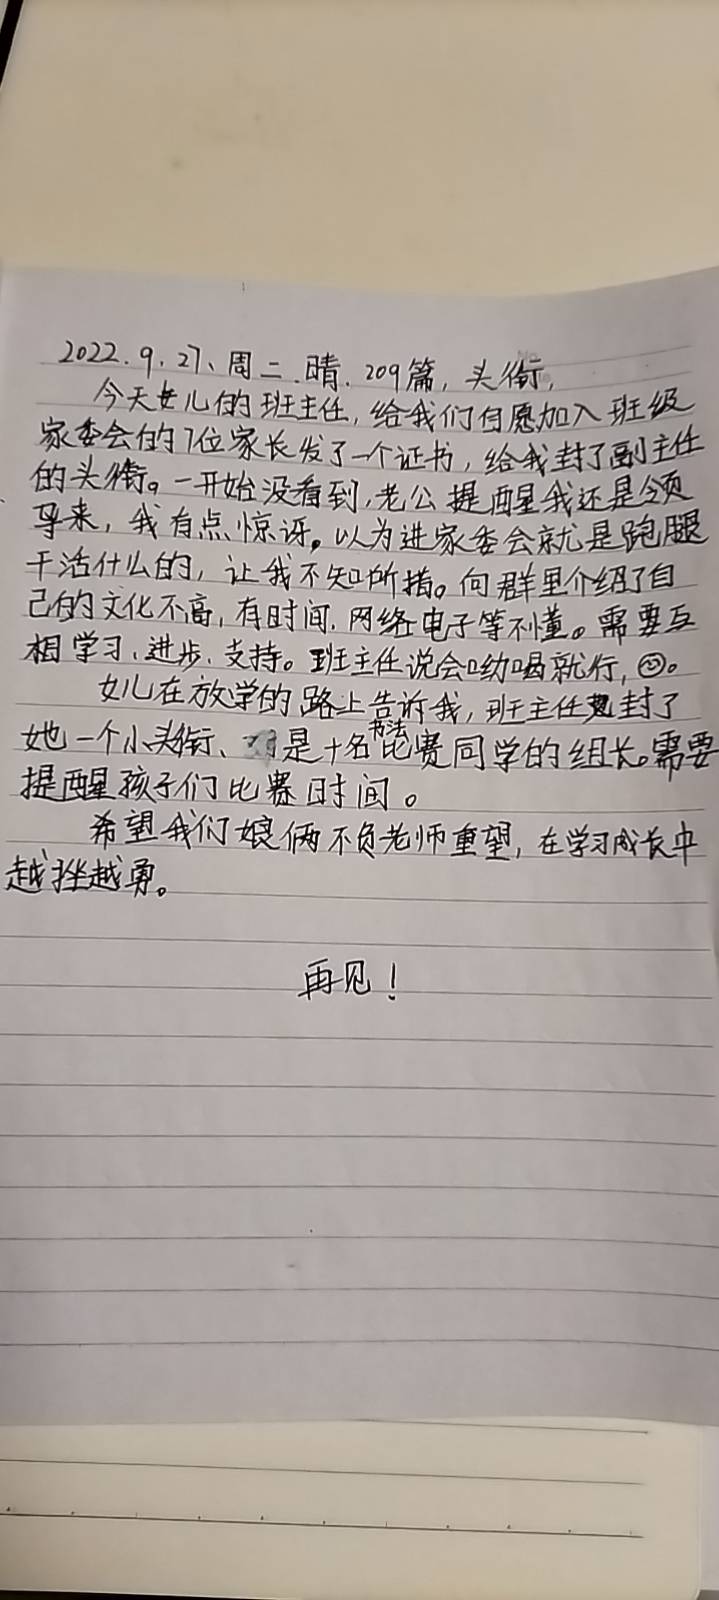 2022.9.27、周二.晴.209篇,头衔,
今天女儿的班主任,给我们自愿加入班级
家委会的7位家长发了一个证书,给我封了副主任
的头衔。一开始没看到,老公提醒我还是领
导来,我有点惊讶。以为进家委会就是跑腿
干活什么的,让我不知所措。向群里介绍了自
己的文化不高,有时间.网络电子等不懂。需要互
相学习、进步、支持。班主任说会吆喝就行,☺。
女儿在放学的路上告诉我,班主任封了
她一个小头衔、是十名书法比赛同学的组长。需要
提醒孩子们比赛时间。
希望我们娘俩不负老师重望,在学习成长中
越挫越勇。
再见!